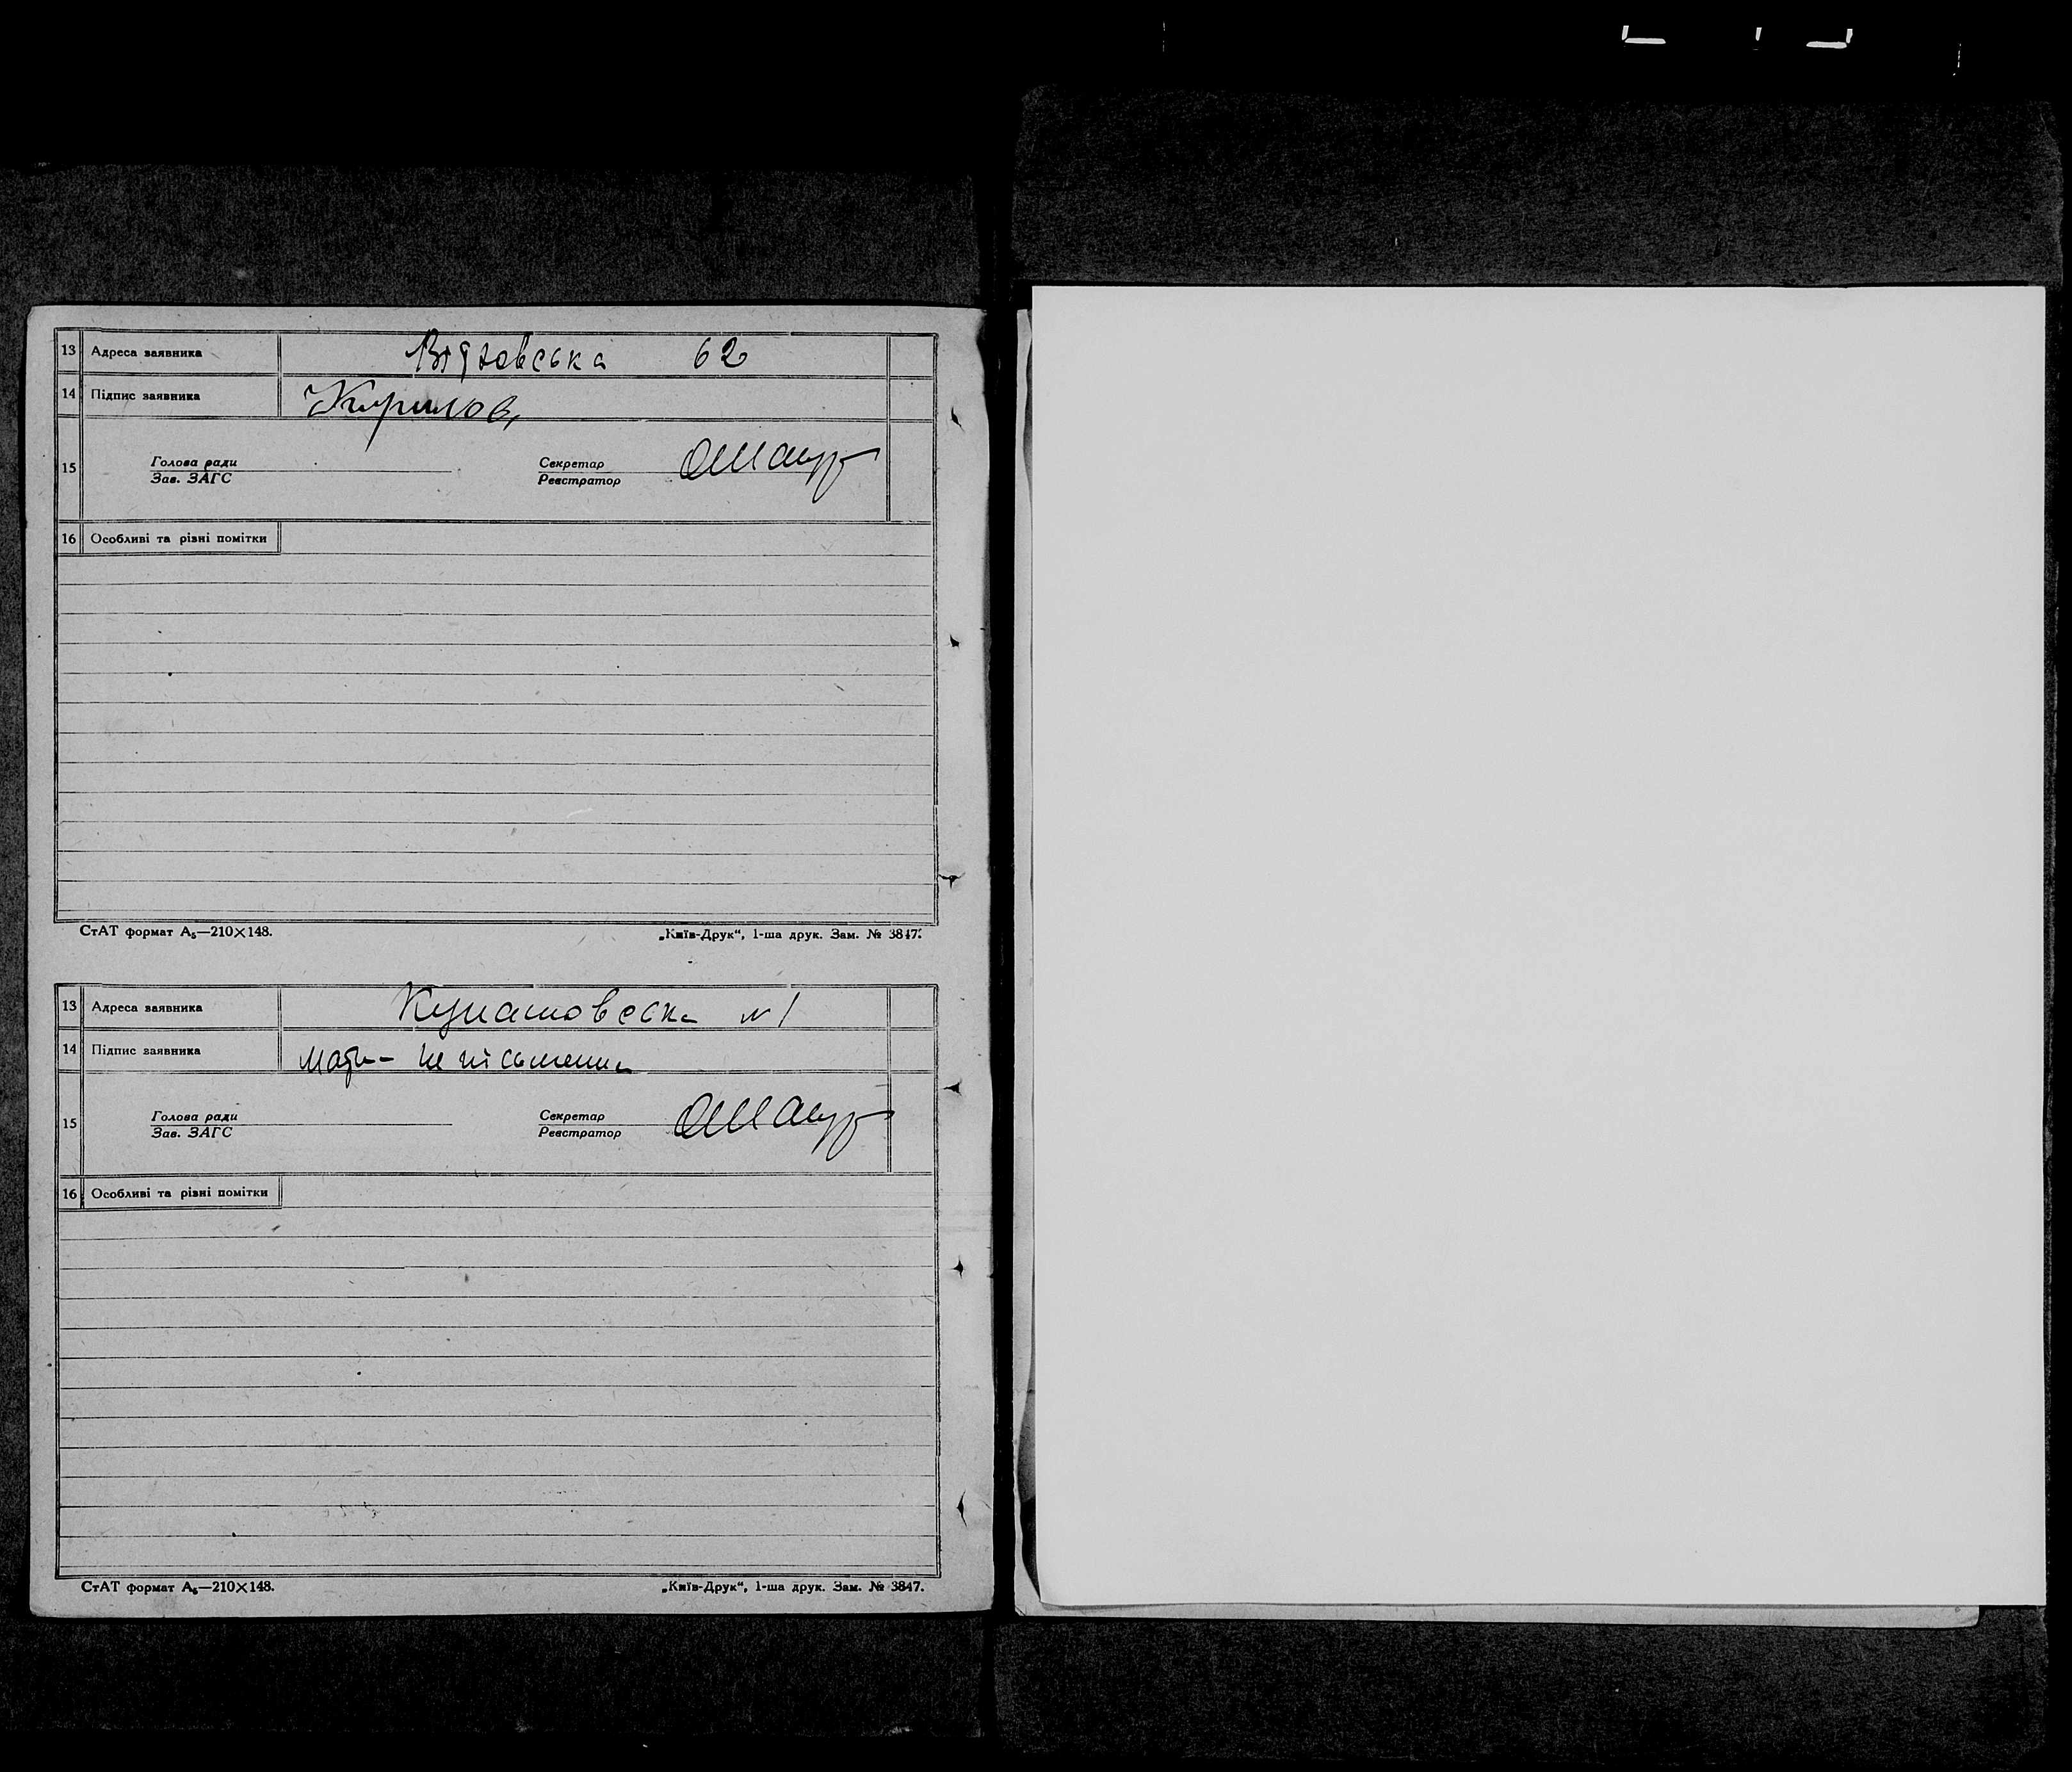 13 Адреса заявника 62
14 Підпис заявника Кирилов
15 Голова ради Секретар
Зав. ЗАГС Реєстратор
16 Особливі та різні помітки
СтАТ формат А₅—210×148. „Київ-Друк“, 1-ша друк. Зам. № 3847.
13 Адреса заявника №1
14 Підпис заявника мати - не письменна
15 Голова ради Секретар
Зав. ЗАГС Реєстратор
16 Особливі та різні помітки
СтАТ формат А₅—210×148. „Київ-Друк“, 1-ша друк. Зам. № 3847.